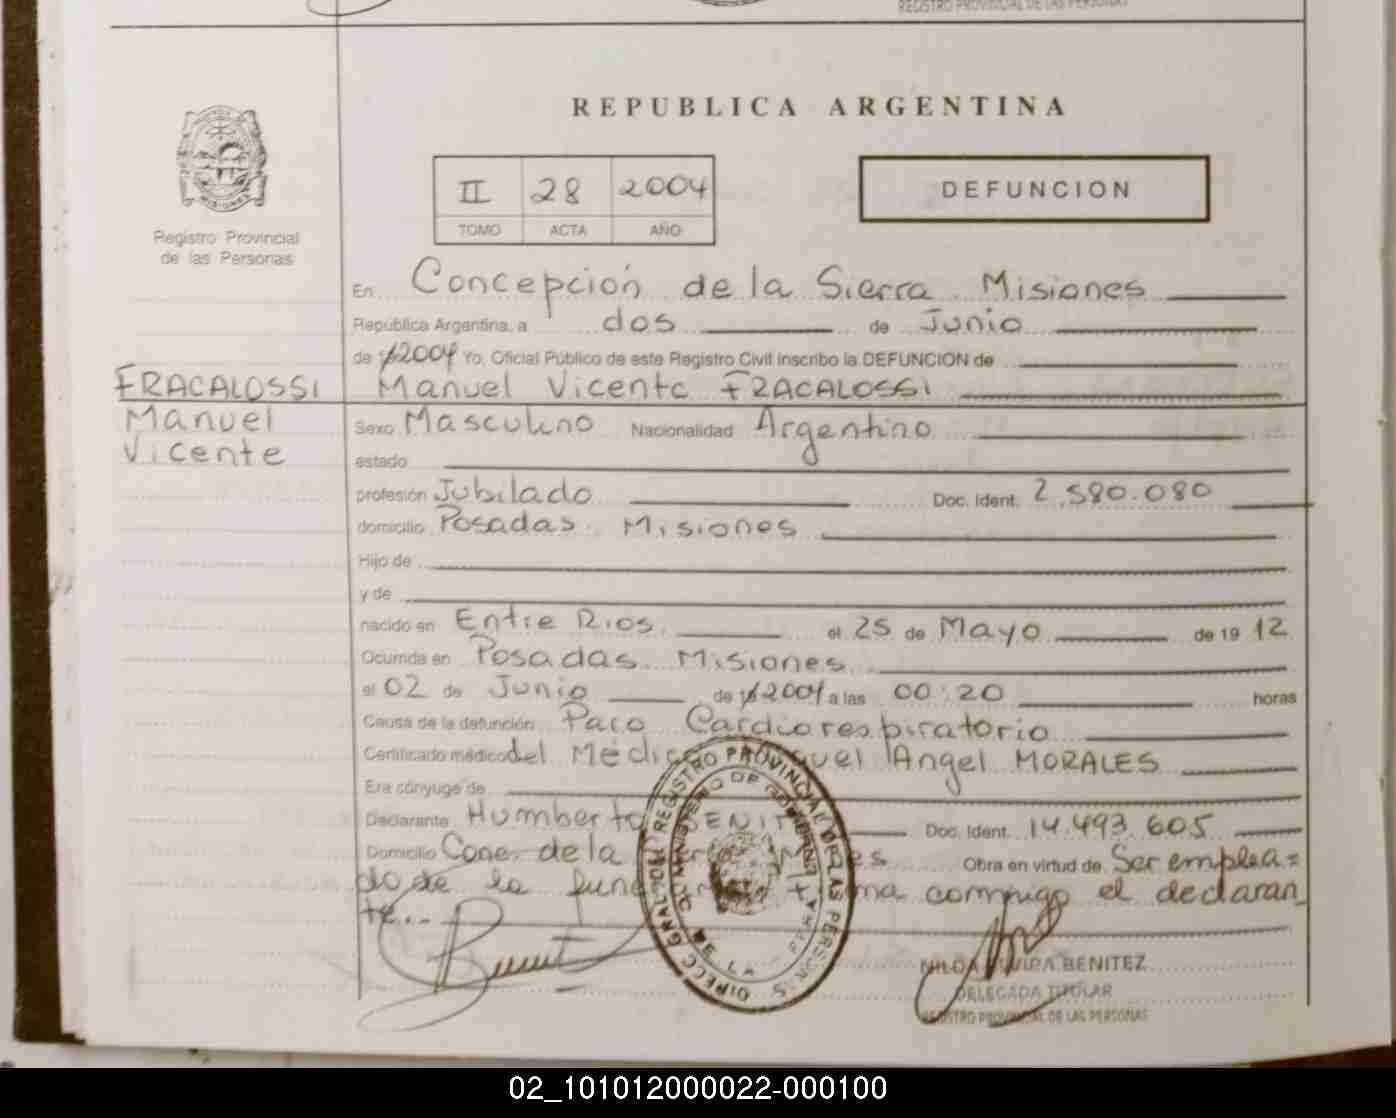 REGISTRO PROVINCIAL DE LAS PERSONAS
REPUBLICA ARGENTINA
II 28 2004
TOMO ACTA AÑO
DEFUNCION
MISIONES
Registro Provincial
de las Personas
En Concepción de la Sierra Misiones
República Argentina, a dos de Junio
de 2004 Yo, Oficial Público de este Registro Civil inscribo la DEFUNCION de
FRACALOSSI Manuel Vicente FRACALOSSI
Manuel
Vicente
Sexo Masculino Nacionalidad Argentino
estado
profesión Jubilado Doc. Ident. 2.580.080
domicilio Posadas Misiones
Hijo de
y de
nacido en Entre Rios el 25 de Mayo de 19 12
Ocurrida en Posadas Misiones
el 02 de Junio de 2004 a las 00:20 horas
Causa de la defunción Paro Cardiorespiratorio
Certificado médico del Médico Angel MORALES
Era cónyuge de
Declarante Humberto Doc. Ident. 14.493.605
Domicilio Conc. de la Obra en virtud de Ser emplea=
do de la conmigo el declaran
te.-
DIRECC GRAL DEL REGISTRO PROVINCIAL DE LAS PERSONAS
MINISTERIO DE GOBIERNO
BENITEZ
DELEGADA TITULAR
REGISTRO PROVINCIAL DE LAS PERSONAS
02_101012000022-000100